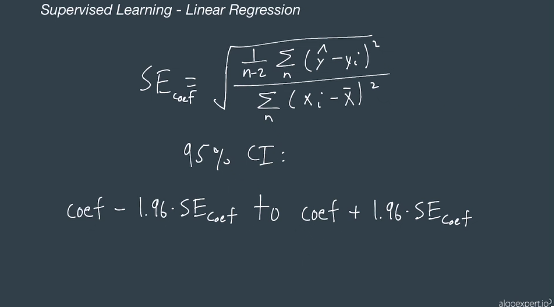 Supervised Learning - Linear Regression
SE_coef = √( (1/(n-2) Σ_n (ŷ - y_i)²) / (Σ_n (x_i - x̄)²) )
95% CI:
coef - 1.96·SE_coef to coef + 1.96·SE_coef
algoexpert.io